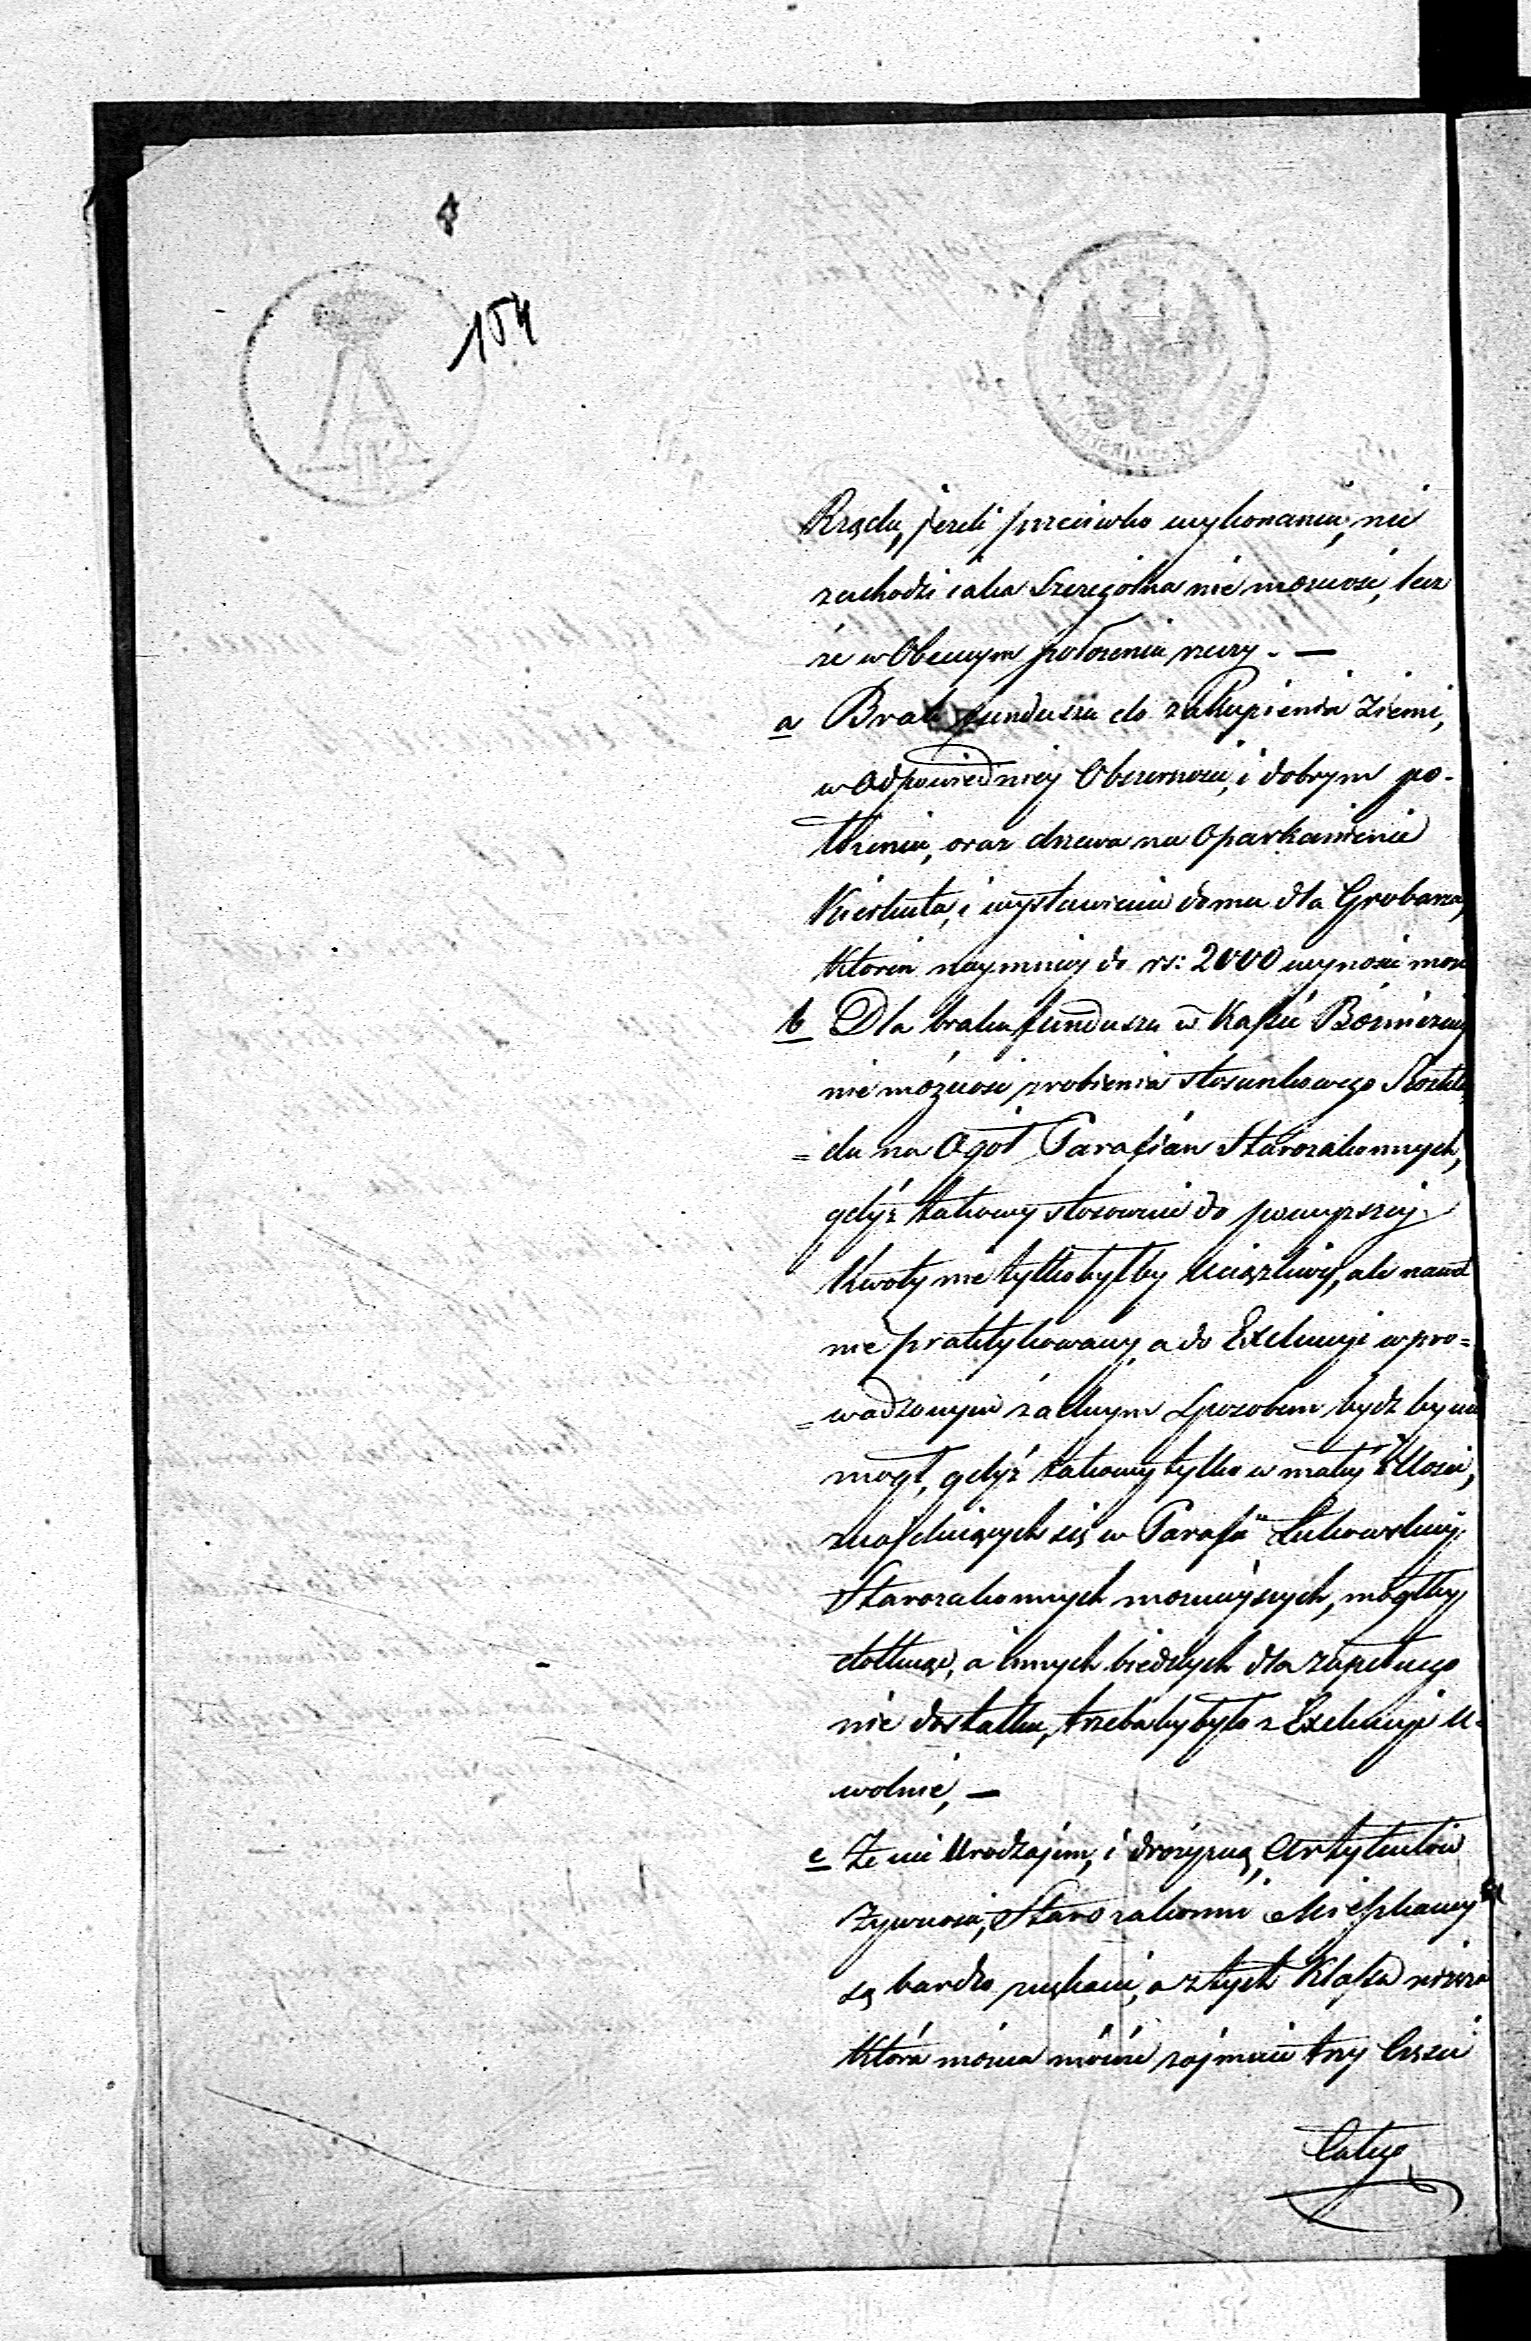 154
Rządu, jeżeli przeciwko wykonaniu, nie
zachodzi iaka Szczególna nie możność, lecz
że w Obecnym położeniu rzeczy. —
a Brak funduszu do zakupienia Ziemi,
w Odpowiedniey Obszerności, i dobrym po-
łożeniu, oraz drzewa na Oparkanienie
Kierkuta, i wystawienie domu dla Grobarza,
które naymniey do rs: 2000 wynosić może
b Dla braku funduszu w Kassie Bożniczey
nie możność zrobienia stosunkowego Rozkła
=du na Ogół Parafian Starozakonnych,
gdyż takowy stosownie do powyższej
Kwoty nie tylko byłby Uciążliwy, ale nawet
nie praktykowany, a do Exekucyi wpro=
=wadzonym żadnym Sposobem bydź by nie
mogł, gdyż takowy tylko w małej Ilości,
znajduiących się w Parafii Łukowskiey
Starozakonnych możnieyszych, mogłby
dotknąć, a innych biednych dla zupełnego
nie dostatku, trzeba by było z Exekucyi u-
wolnić, —
c Ze nie Urodzajem, i drożyzną, Artykułów
Żywności, Starozakonni Mieszkańcy
są bardzo znękani, a z tych Klassa niższa
która można mówić zajmuie trzy Części
Całego